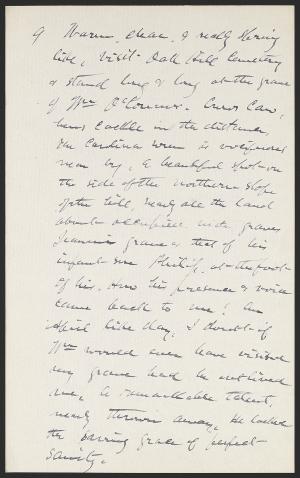 9 Warm, clear, & really spring
like, visit Oak Hill Cemetery
& stand long & long at the grave
of Wm O'Connor. Crows caw,
hens cackle in the distance,
the Carolina wren is vociferous
near by, a beautiful spot on
the side of the northern slope
of the hill, nearly all the land
about occupied with graves
Jeannie's grave & that of his
infant son Philip, at the foot
of his. How his presence & voice
came back to me! An
April like day. I doubt if
Wm would ever have visited
my grave had he outlived
me. A remarkable talent,
nearly thrown away. He lacked
the saving grace of perfect
sanity.